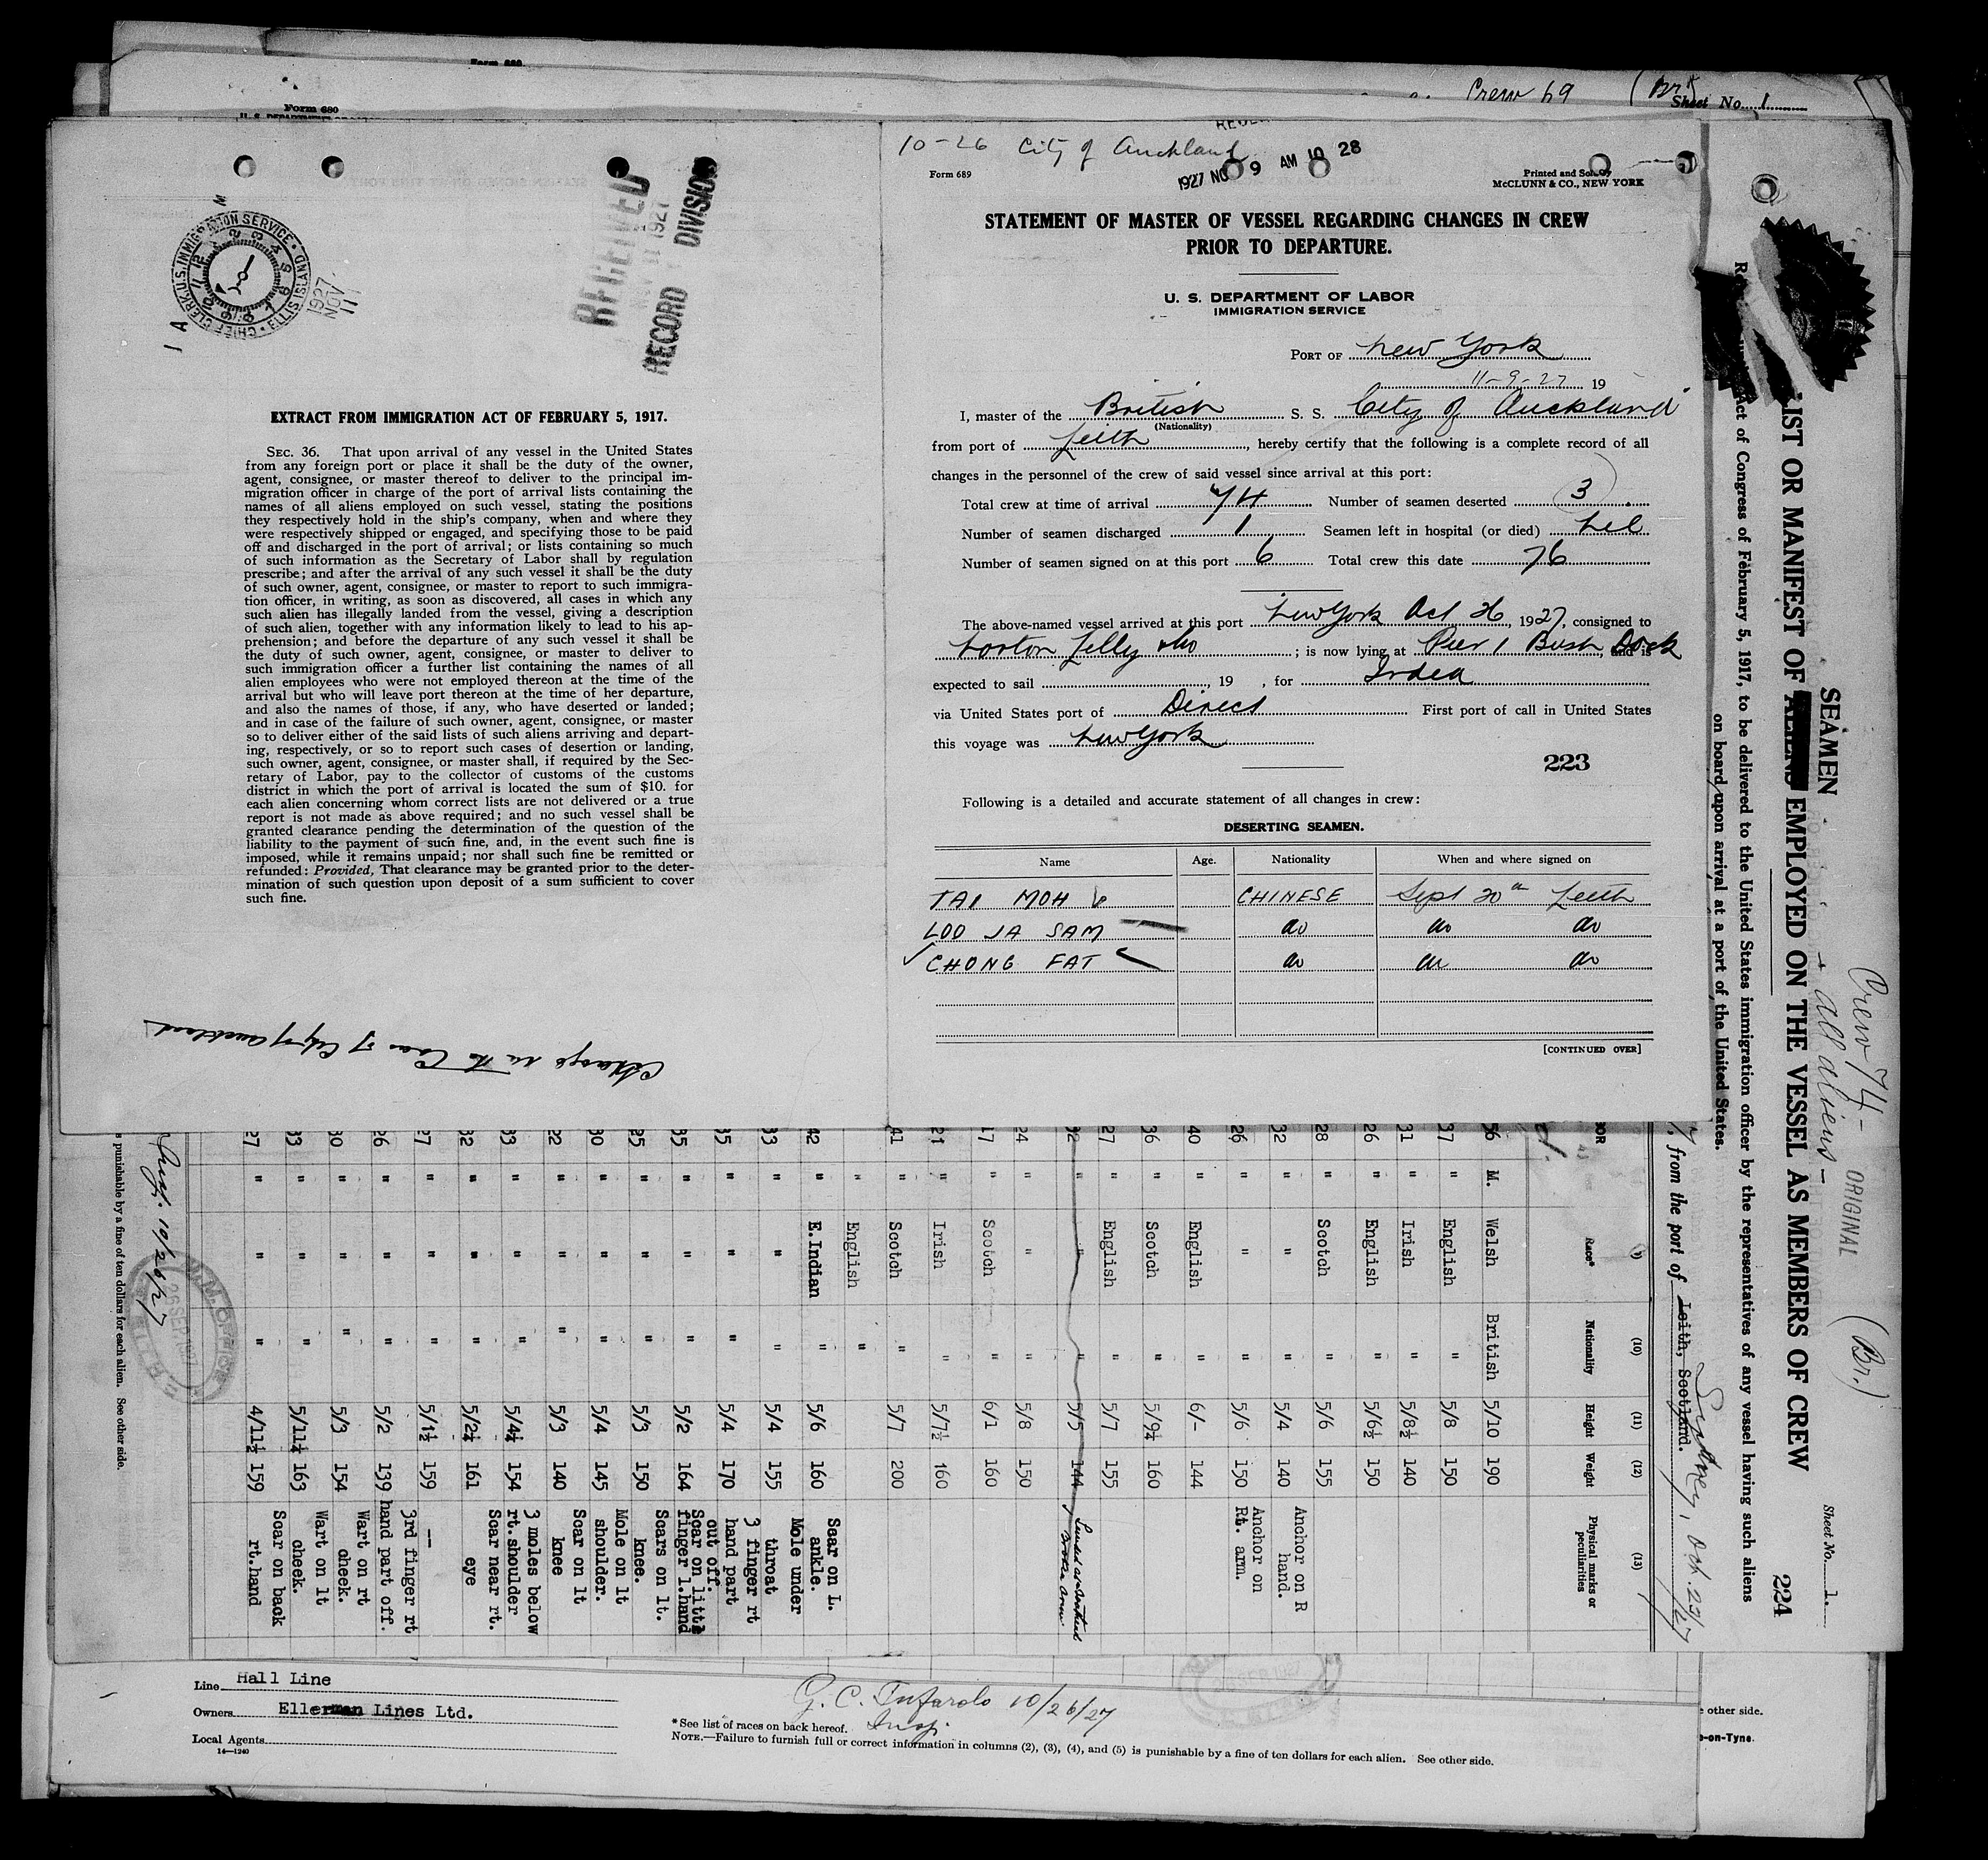 Form 680
Form 680
Crew 69 (Br)
Sheet No. 1
10-26 City of Auckland
1927 NO 9 AM 10 28
Form 689
Printed and Sold by
McCLUNN & CO., NEW YORK
STATEMENT OF MASTER OF VESSEL REGARDING CHANGES IN CREW
PRIOR TO DEPARTURE.
U. S. DEPARTMENT OF LABOR
IMMIGRATION SERVICE
PORT OF New York
11-9-27 19
I, master of the British S. S. City of Auckland
(Nationality)
from port of Leith, hereby certify that the following is a complete record of all
changes in the personnel of the crew of said vessel since arrival at this port:
Total crew at time of arrival 74 Number of seamen deserted 3
Number of seamen discharged 1 Seamen left in hospital (or died) Nil
Number of seamen signed on at this port 6 Total crew this date 76
The above-named vessel arrived at this port New York Oct 26, 1927, consigned to
Norton Lilly & Co; is now lying at Pier 1 Bush Dock, and is
expected to sail , 19 , for India
via United States port of Direct First port of call in United States
this voyage was New York
223
Following is a detailed and accurate statement of all changes in crew:
DESERTING SEAMEN.
Name Age. Nationality When and where signed on
TAI MOH CHINESE Sept 20th Leith
LOO JA SAM do do do
CHONG FAT do do do
[CONTINUED OVER]
CHIEF CLERK U.S. IMMIGRATION SERVICE ELLIS ISLAND
1927 NOV 11
RECEIVED
NOV 11 1927
RECORD DIVISION
EXTRACT FROM IMMIGRATION ACT OF FEBRUARY 5, 1917.
SEC. 36. That upon arrival of any vessel in the United States
from any foreign port or place it shall be the duty of the owner,
agent, consignee, or master thereof to deliver to the principal im-
migration officer in charge of the port of arrival lists containing the
names of all aliens employed on such vessel, stating the positions
they respectively hold in the ship's company, when and where they
were respectively shipped or engaged, and specifying those to be paid
off and discharged in the port of arrival; or lists containing so much
of such information as the Secretary of Labor shall by regulation
prescribe; and after the arrival of any such vessel it shall be the duty
of such owner, agent, consignee, or master to report to such immigra-
tion officer, in writing, as soon as discovered, all cases in which any
such alien has illegally landed from the vessel, giving a description
of such alien, together with any information likely to lead to his ap-
prehension; and before the departure of any such vessel it shall be
the duty of such owner, agent, consignee, or master to deliver to
such immigration officer a further list containing the names of all
alien employees who were not employed thereon at the time of the
arrival but who will leave port thereon at the time of her departure,
and also the names of those, if any, who have deserted or landed;
and in case of the failure of such owner, agent, consignee, or master
so to deliver either of the said lists of such aliens arriving and depart-
ing, respectively, or so to report such cases of desertion or landing,
such owner, agent, consignee, or master shall, if required by the Sec-
retary of Labor, pay to the collector of customs of the customs
district in which the port of arrival is located the sum of $10. for
each alien concerning whom correct lists are not delivered or a true
report is not made as above required; and no such vessel shall be
granted clearance pending the determination of the question of the
liability to the payment of such fine, and, in the event such fine is
imposed, while it remains unpaid; nor shall such fine be remitted or
refunded: Provided, That clearance may be granted prior to the deter-
mination of such question upon deposit of a sum sufficient to cover
such fine.
Change in the Crew of City of Auckland
Crew 74 - ORIGINAL (Br.)
+ all aliens -
SEAMEN
Sheet No. 1.
LIST OR MANIFEST OF ALIENS EMPLOYED ON THE VESSEL AS MEMBERS OF CREW 224
Act of Congress of February 5, 1917, to be delivered to the United States immigration officer by the representatives of any vessel having such aliens
on board upon arrival at a port of the United States.
from the port of Leith, Scotland. Sydney, Oct. 22/27
(10) (11) (12) (13)
Race* Nationality Height Weight Physical marks or peculiarities
56 M. Welsh British 5/10 190
37 " English " 5/8 150
31 " Irish " 5/8½ 140
26 " English " 5/6½ 150
28 " Scotch " 5/6 155
32 " " " 5/4 140 Anchor on R hand.
26 " " " 5/6 150 Anchor on Rt. arm.
40 " English " 6/- 144
36 " Scotch " 5/9¼ 160
27 " English " 5/7 155
32 " " " 5/5 144
24 " " " 5/8 150
17 " Scotch " 6/1 160
21 " Irish " 5/7½ 160
41 " Scotch " 5/7 200
" English "
42 " E.Indian " 5/6 160 Scar on L. ankle.
33 " " " 5/4 155 Mole under throat
35 " " " 5/4 170 3 finger rt hand part cut off.
35 " " " 5/2 164 Scar on little finger l.hand
25 " " " 5/3 150 Scars on lt. knee.
30 " " " 5/4 145 Mole on lt shoulder.
22 " " " 5/3 140 Scar on lt knee
33 " " " 5/4¼ 154 3 moles below rt.shoulder
32 " " " 5/2¼ 161 Scar near rt. eye
27 " " " 5/1½ 159 --
26 " " " 5/2 139 3rd finger rt hand part off.
30 " " " 5/3 154 Wart on rt cheek.
33 " " " 5/11¼ 163 Wart on lt cheek.
27 " " " 4/11½ 159 Scar on back rt.hand
Insp. 10/26/27
26 SEP 1927
punishable by a fine of ten dollars for each alien. See other side.
Line Hall Line
Owners Ellerman Lines Ltd.
Local Agents
14-1240
10/26/27
Insp.
*See list of races on back hereof.
NOTE.—Failure to furnish full or correct information in columns (2), (3), (4), and (5) is punishable by a fine of ten dollars for each alien. See other side.
other side.
-on-Tyne.